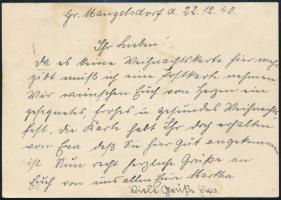 Gr. Mangelsdorf d. 22.12.40.
Ihr Lieben!
Da es keine Weihnachtskarte hier mehr
gibt muß ich eine Postkart nehmen
Wir wünschen Euch von Herzen ein
gesegnetes, frohes u. gesundes Weihnachts-
fest. die Karte habt Ihr doch erhalten
von Eva daß sie hier gut angekommen
ist Nun recht herzliche Grüße an
Euch von uns allen Eure Martha
Viele Grüße Eva